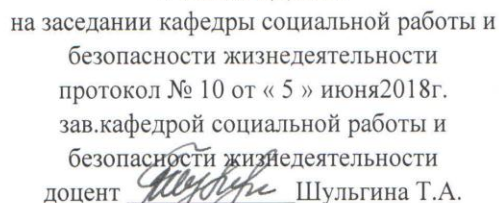 на заседании кафедры социальной работы и
безопасности жизнедеятельности
протокол № 10 от « 5 » июня2018г.
зав.кафедрой социальной работы и
безопасности жизнедеятельности
доцент Шульгина Т.А.